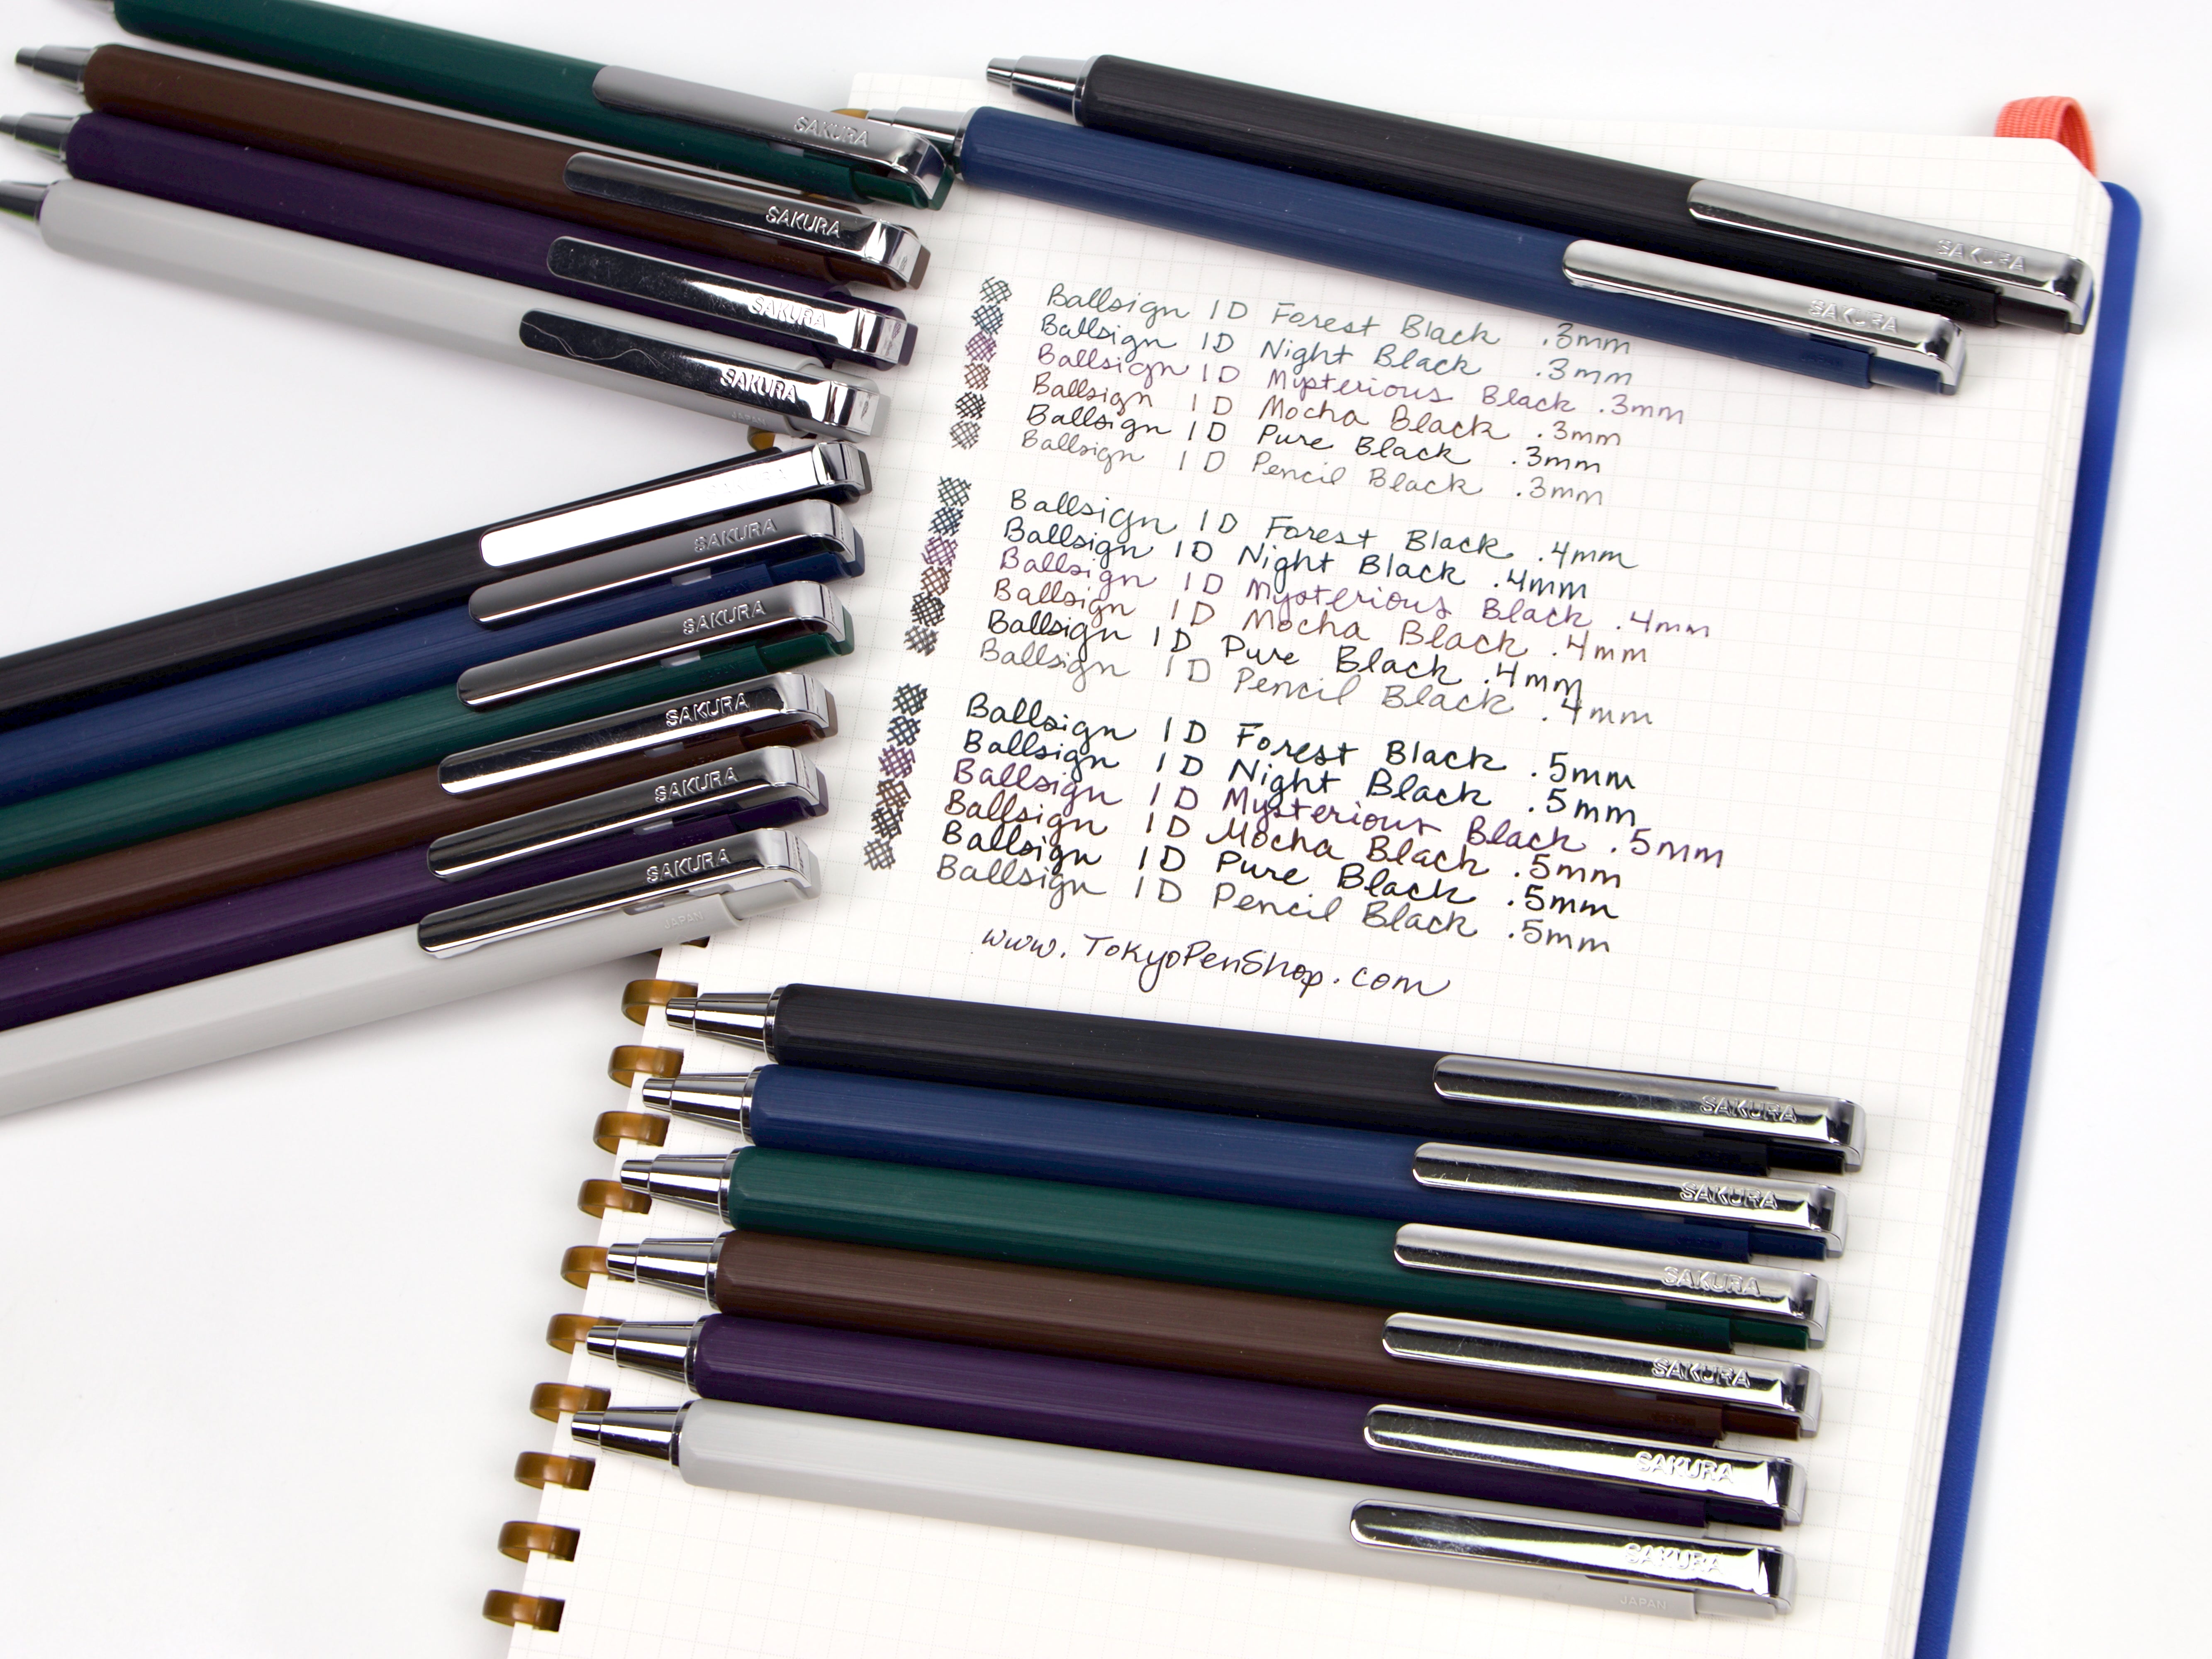 SAKURA
SAKURA
SAKURA
SAKURA
JAPAN
SAKURA
SAKURA
Ballsign 1D Forest Black .3mm
Ballsign 1D Night Black .3mm
Ballsign 1D Mysterious Black .3mm
Ballsign 1D Mocha Black .3mm
Ballsign 1D Pure Black .3mm
Ballsign 1D Pencil Black .3mm
Ballsign 1D Forest Black .4mm
Ballsign 1D Night Black .4mm
Ballsign 1D Mysterious Black .4mm
Ballsign 1D Mocha Black .4mm
Ballsign 1D Pure Black .4mm
Ballsign 1D Pencil Black .4mm
Ballsign 1D Forest Black .5mm
Ballsign 1D Night Black .5mm
Ballsign 1D Mysterious Black .5mm
Ballsign 1D Mocha Black .5mm
Ballsign 1D Pure Black .5mm
Ballsign 1D Pencil Black .5mm
www.TokyoPenShop.com
SAKURA
SAKURA
SAKURA
SAKURA
SAKURA
JAPAN
SAKURA
SAKURA
SAKURA
SAKURA
SAKURA
SAKURA
JAPAN